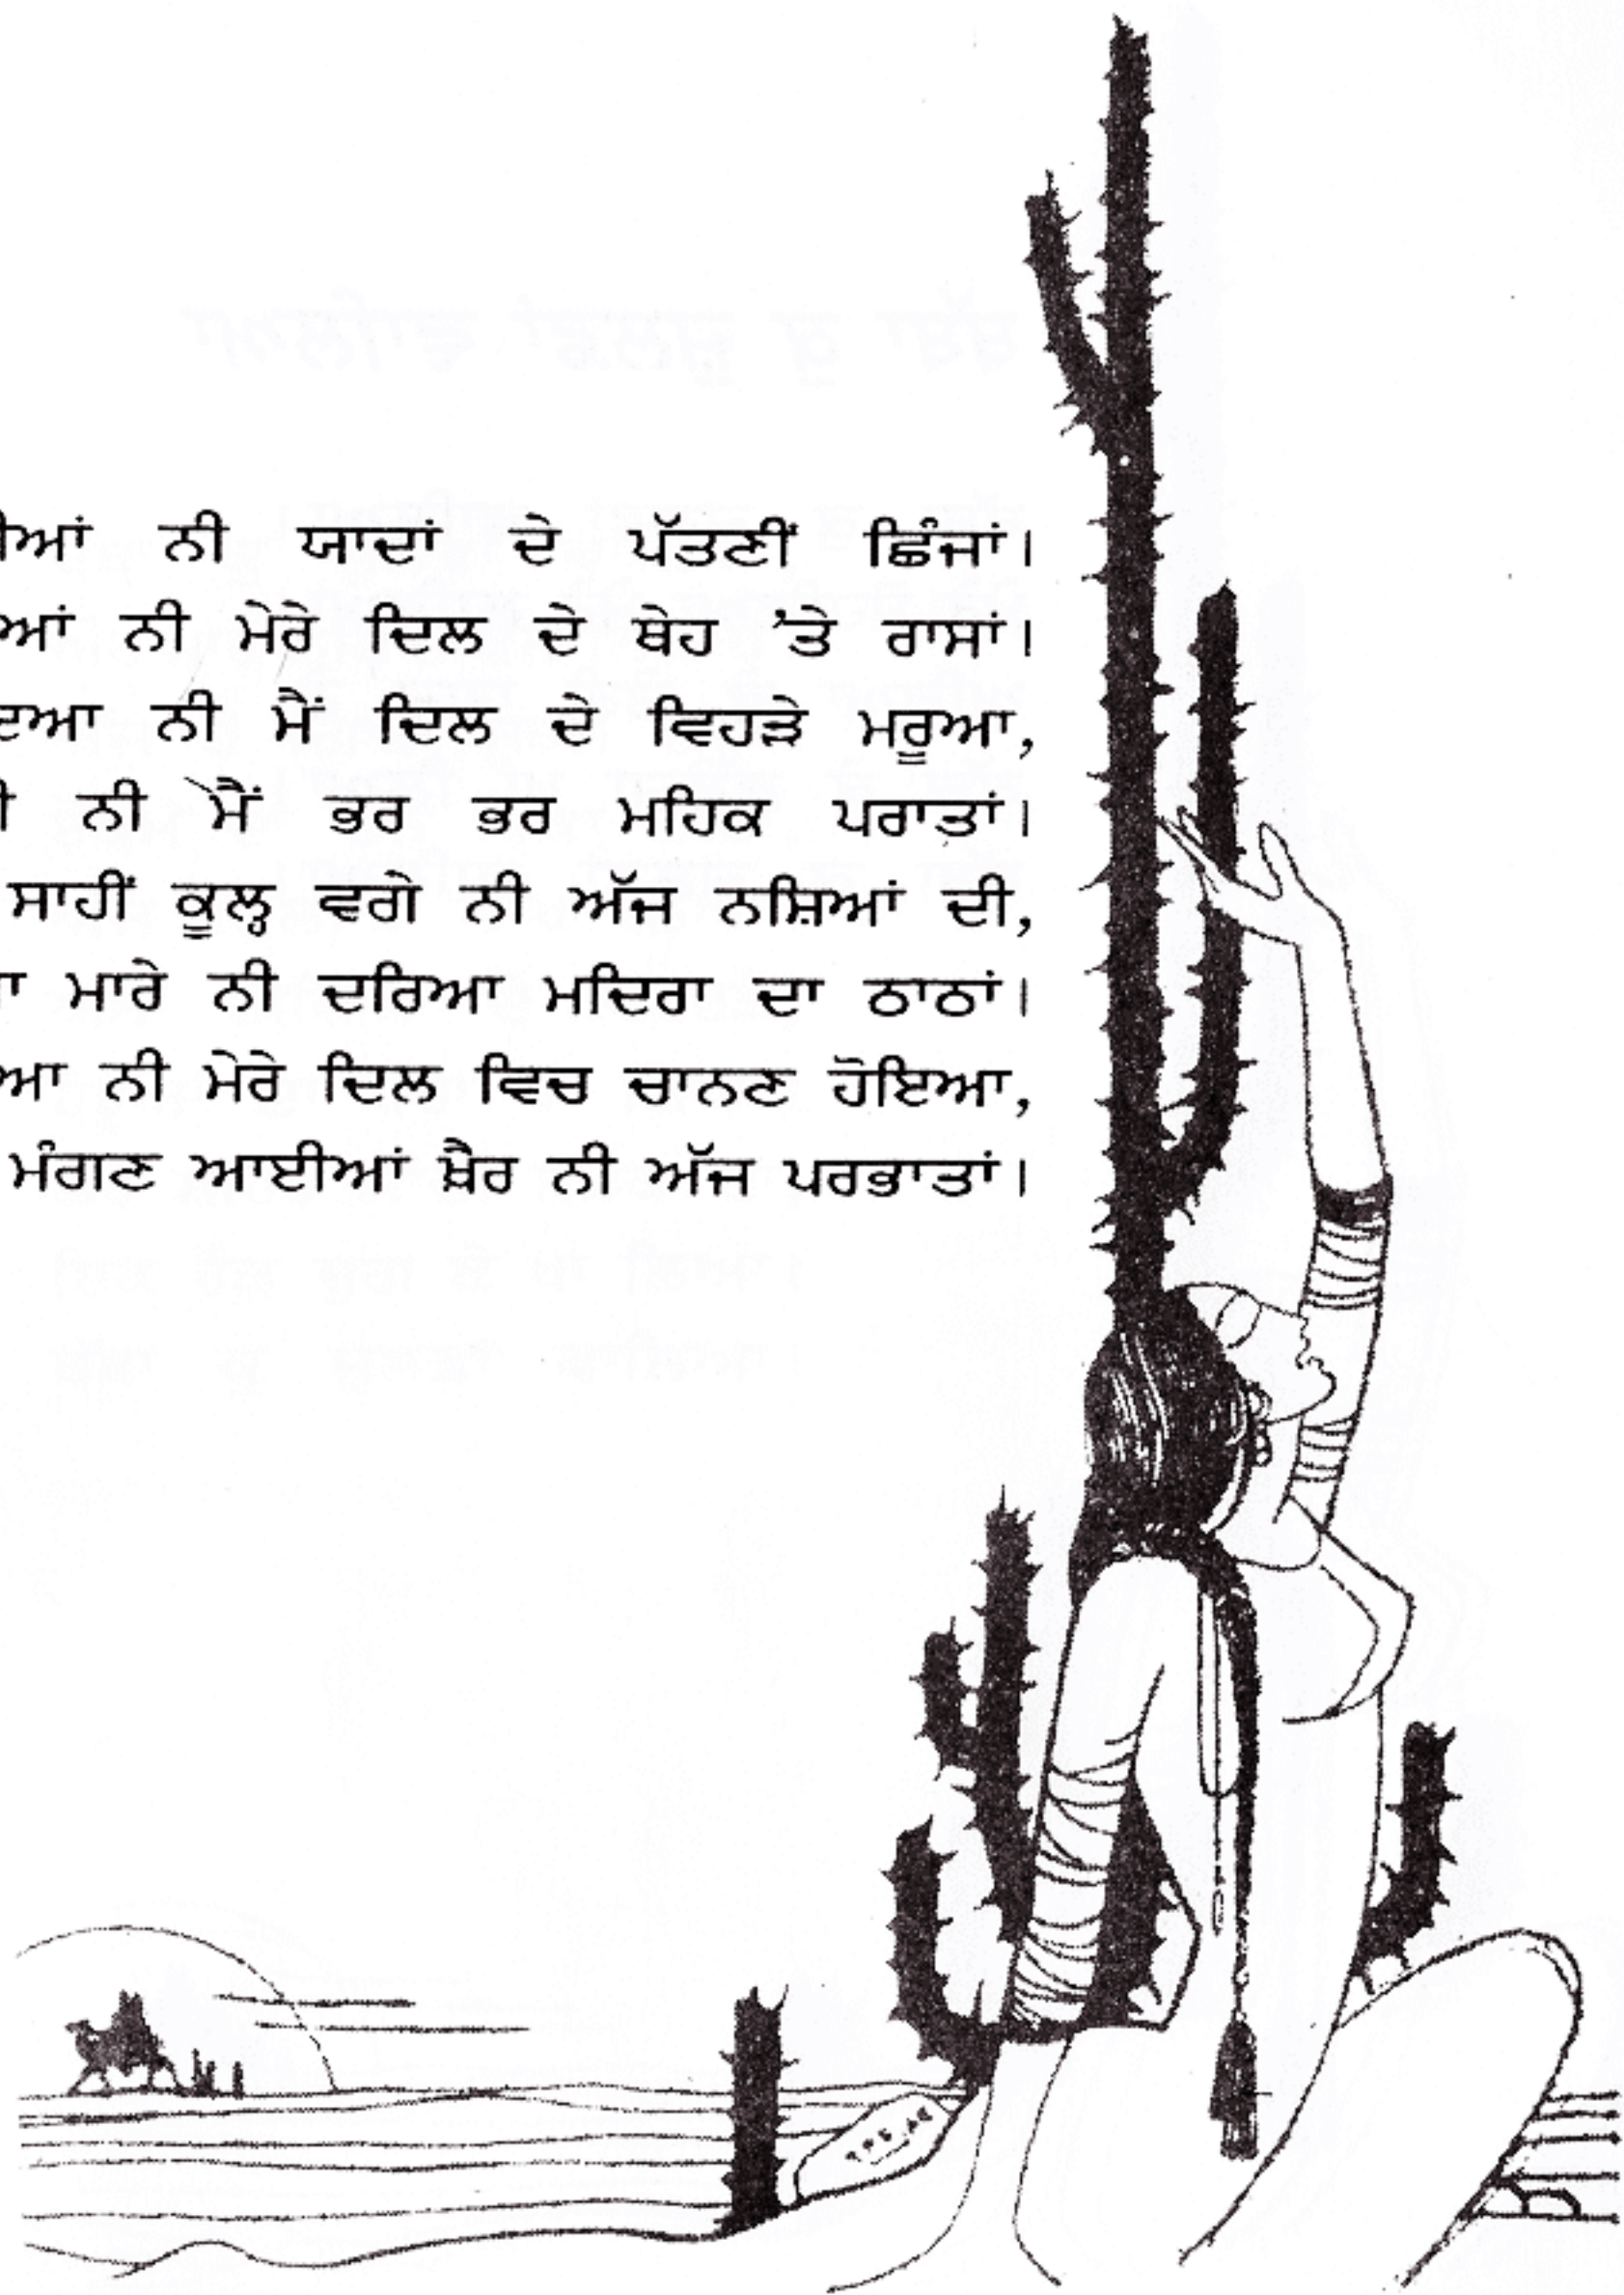 ਨੀ ਯਾਦਾਂ ਦੇ ਪੱਤਣੀਂ ਛਿੰਜਾਂ।
ਨੀ ਮੇਰੇ ਦਿਲ ਦੇ ਥੇਹ 'ਤੇ ਰਾਸਾਂ।
ਨੀ ਮੈਂ ਦਿਲ ਦੇ ਵਿਹੜੇ ਮਰੂਆ,
ਨੀ ਮੈਂ ਭਰ ਭਰ ਮਹਿਕ ਪਰਾਤਾਂ।
ਸਾਹੀਂ ਕੂਲ੍ਹ ਵਗੇ ਨੀ ਅੱਜ ਨਸ਼ਿਆਂ ਦੀ,
ਮਾਰੇ ਨੀ ਦਰਿਆ ਮਦਿਰਾ ਦਾ ਠਾਠਾਂ।
ਨੀ ਮੇਰੇ ਦਿਲ ਵਿਚ ਚਾਨਣ ਹੋਇਆ,
ਮੰਗਣ ਆਈਆਂ ਖ਼ੈਰ ਨੀ ਅੱਜ ਪਰਭਾਤਾਂ।